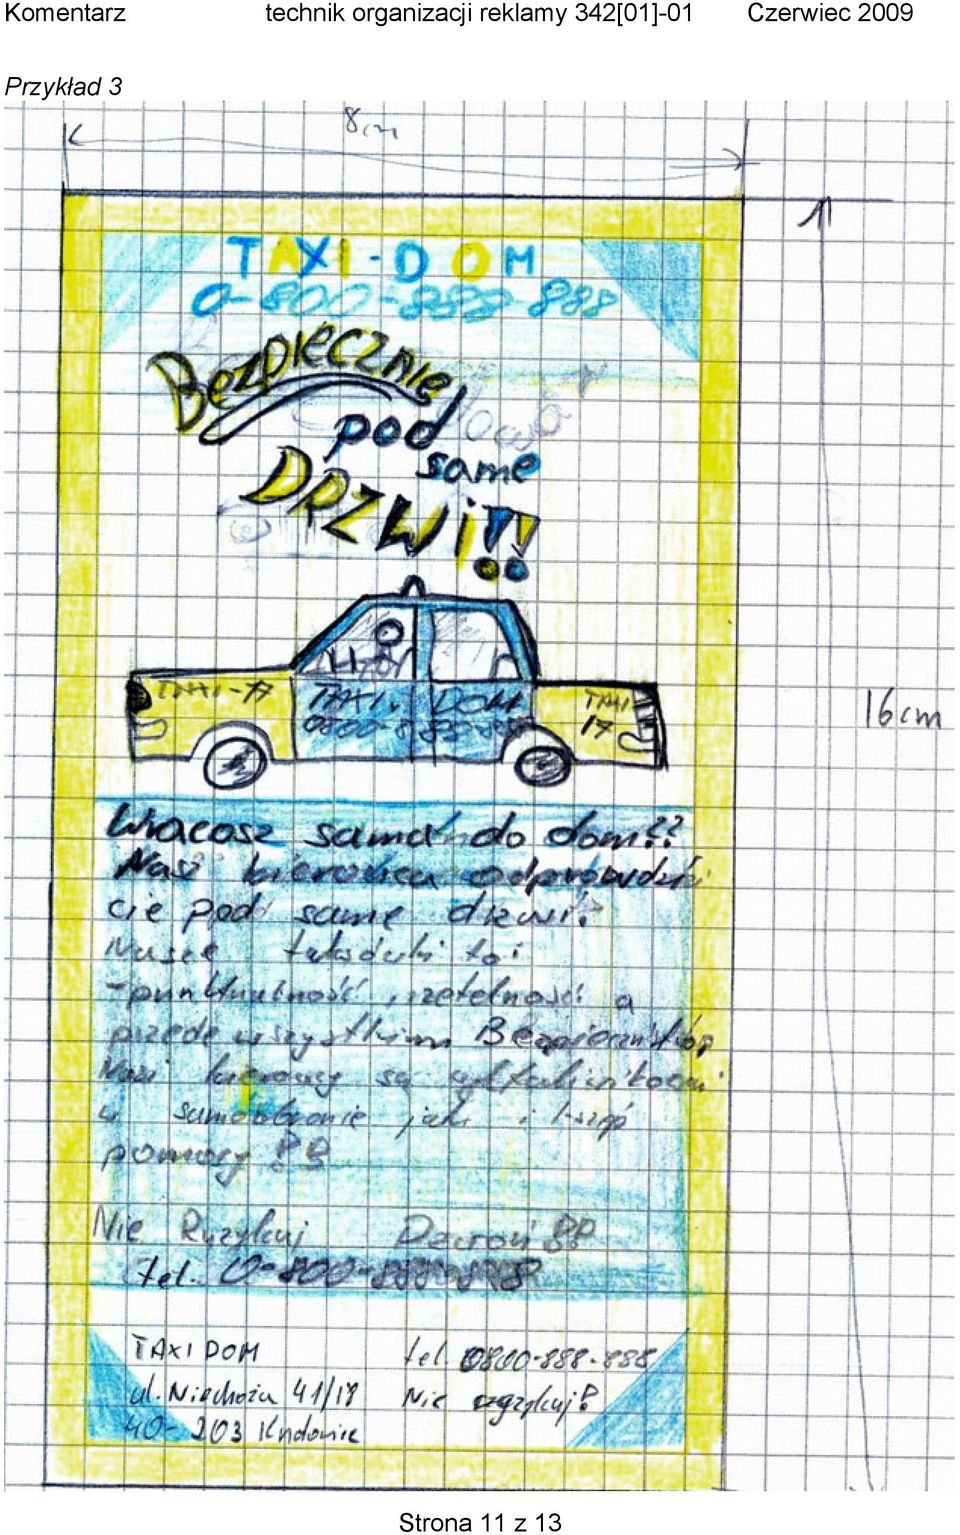 Komentarz technik organizacji reklamy 342[01]-01 Czerwiec 2009
Przykład 3
8cm
TAXI-DOM
0-800-888-888
Bezpiecznie
pod
same
DRZWi!!
16cm
TAXI-17 TAXI DOM TAXI
0800-888888 17
Wracasz sama do dom??
Nasz odprowadzi
cie pod same drzwi?
Nasze to:
-punktualność, rzetelność a
przede wszystkim
Nasi są
w samoobronie jak i
pomocy !!
Nie Ryzykuj Dzwoń !!
tel. 0-800-888-888
TAXI DOM tel. 0800-888-888
ul. 41/17 Nie ryzykuj!
40-203
Strona 11 z 13